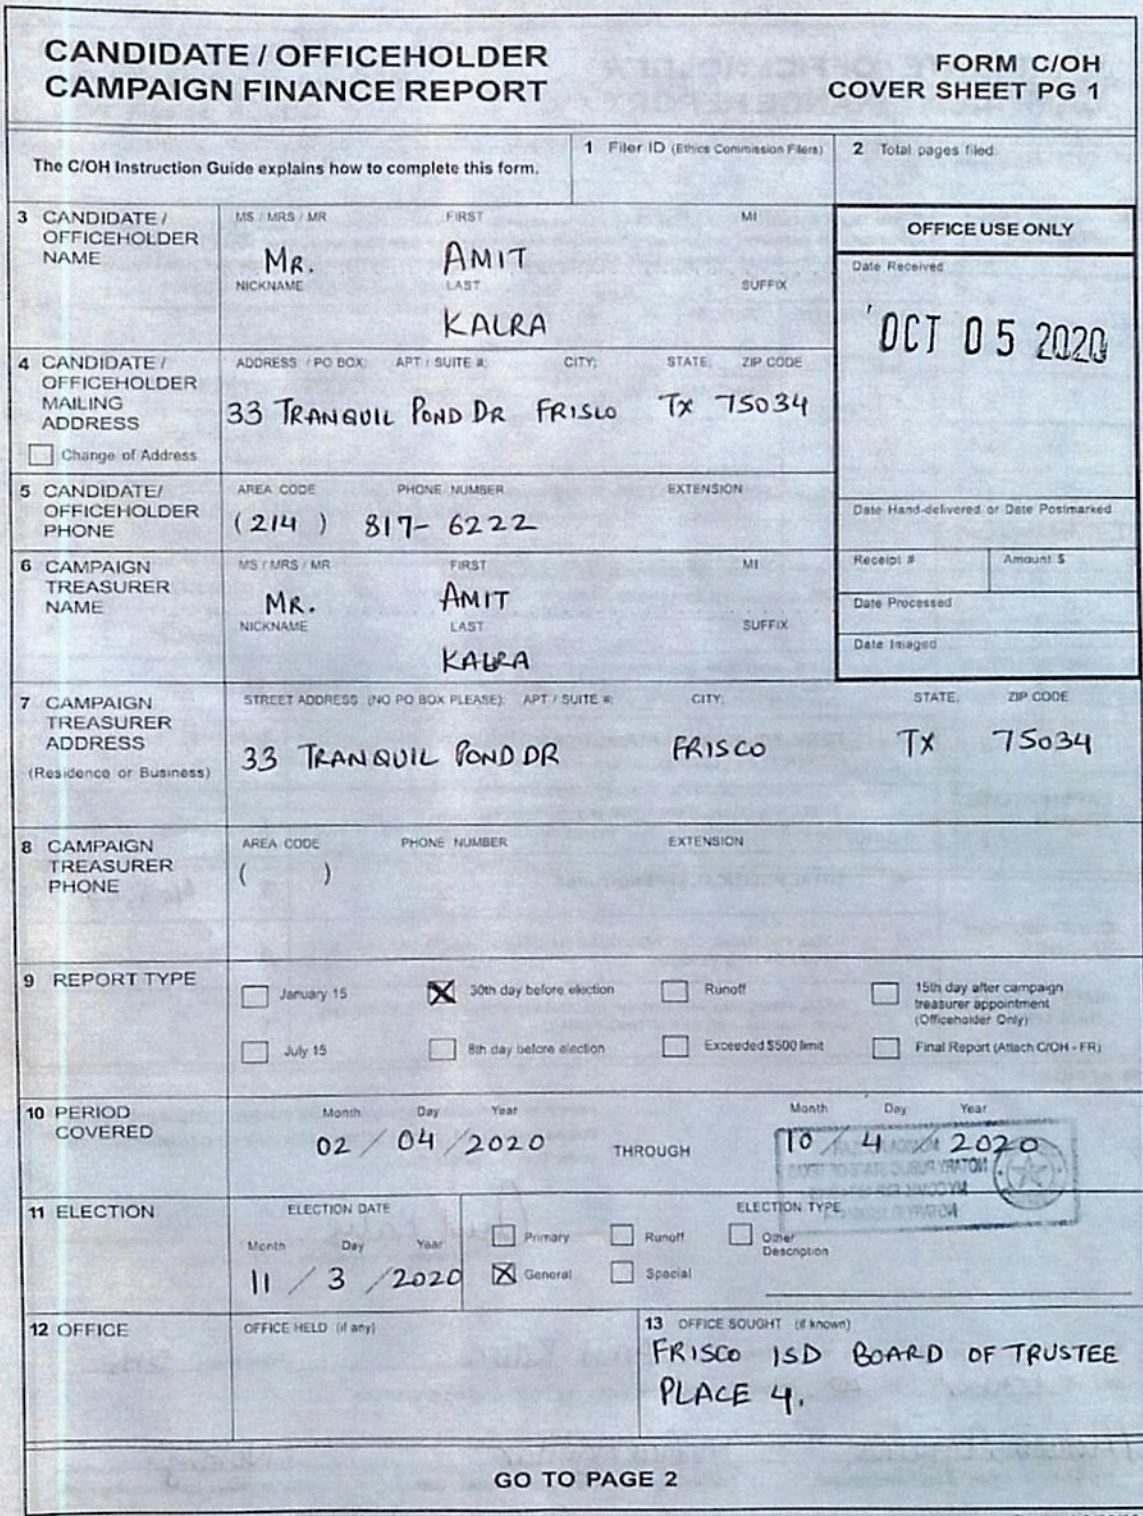 CANDIDATE / OFFICEHOLDER
CAMPAIGN FINANCE REPORT
FORM C/OH
COVER SHEET PG 1
The C/OH Instruction Guide explains how to complete this form.
1 Filer ID (Ethics Commission Filers)
2 Total pages filed:
3 CANDIDATE / OFFICEHOLDER NAME
MS / MRS / MR FIRST MI
MR. AMIT
NICKNAME LAST SUFFIX
KALRA
OFFICE USE ONLY
Date Received
OCT 05 2020
4 CANDIDATE / OFFICEHOLDER MAILING ADDRESS
Change of Address
ADDRESS / PO BOX; APT / SUITE #; CITY; STATE; ZIP CODE
33 TRANQUIL POND DR FRISCO TX 75034
5 CANDIDATE/ OFFICEHOLDER PHONE
AREA CODE PHONE NUMBER EXTENSION
(214) 817-6222
Date Hand-delivered or Date Postmarked
6 CAMPAIGN TREASURER NAME
MS / MRS / MR FIRST MI
MR. AMIT
NICKNAME LAST SUFFIX
KALRA
Receipt # Amount $
Date Processed
Date Imaged
7 CAMPAIGN TREASURER ADDRESS
(Residence or Business)
STREET ADDRESS (NO PO BOX PLEASE); APT / SUITE #; CITY; STATE; ZIP CODE
33 TRANQUIL POND DR FRISCO TX 75034
8 CAMPAIGN TREASURER PHONE
AREA CODE PHONE NUMBER EXTENSION
( )
9 REPORT TYPE
January 15 30th day before election Runoff 15th day after campaign treasurer appointment (Officeholder Only)
July 15 8th day before election Exceeded $500 limit Final Report (Attach C/OH - FR)
10 PERIOD COVERED
Month Day Year Month Day Year
02 / 04 / 2020 THROUGH 10 / 4 / 2020
11 ELECTION
ELECTION DATE
Month Day Year
11 / 3 / 2020
ELECTION TYPE
Primary Runoff Other Description
General Special
12 OFFICE
OFFICE HELD (if any)
13 OFFICE SOUGHT (if known)
FRISCO ISD BOARD OF TRUSTEE
PLACE 4.
GO TO PAGE 2